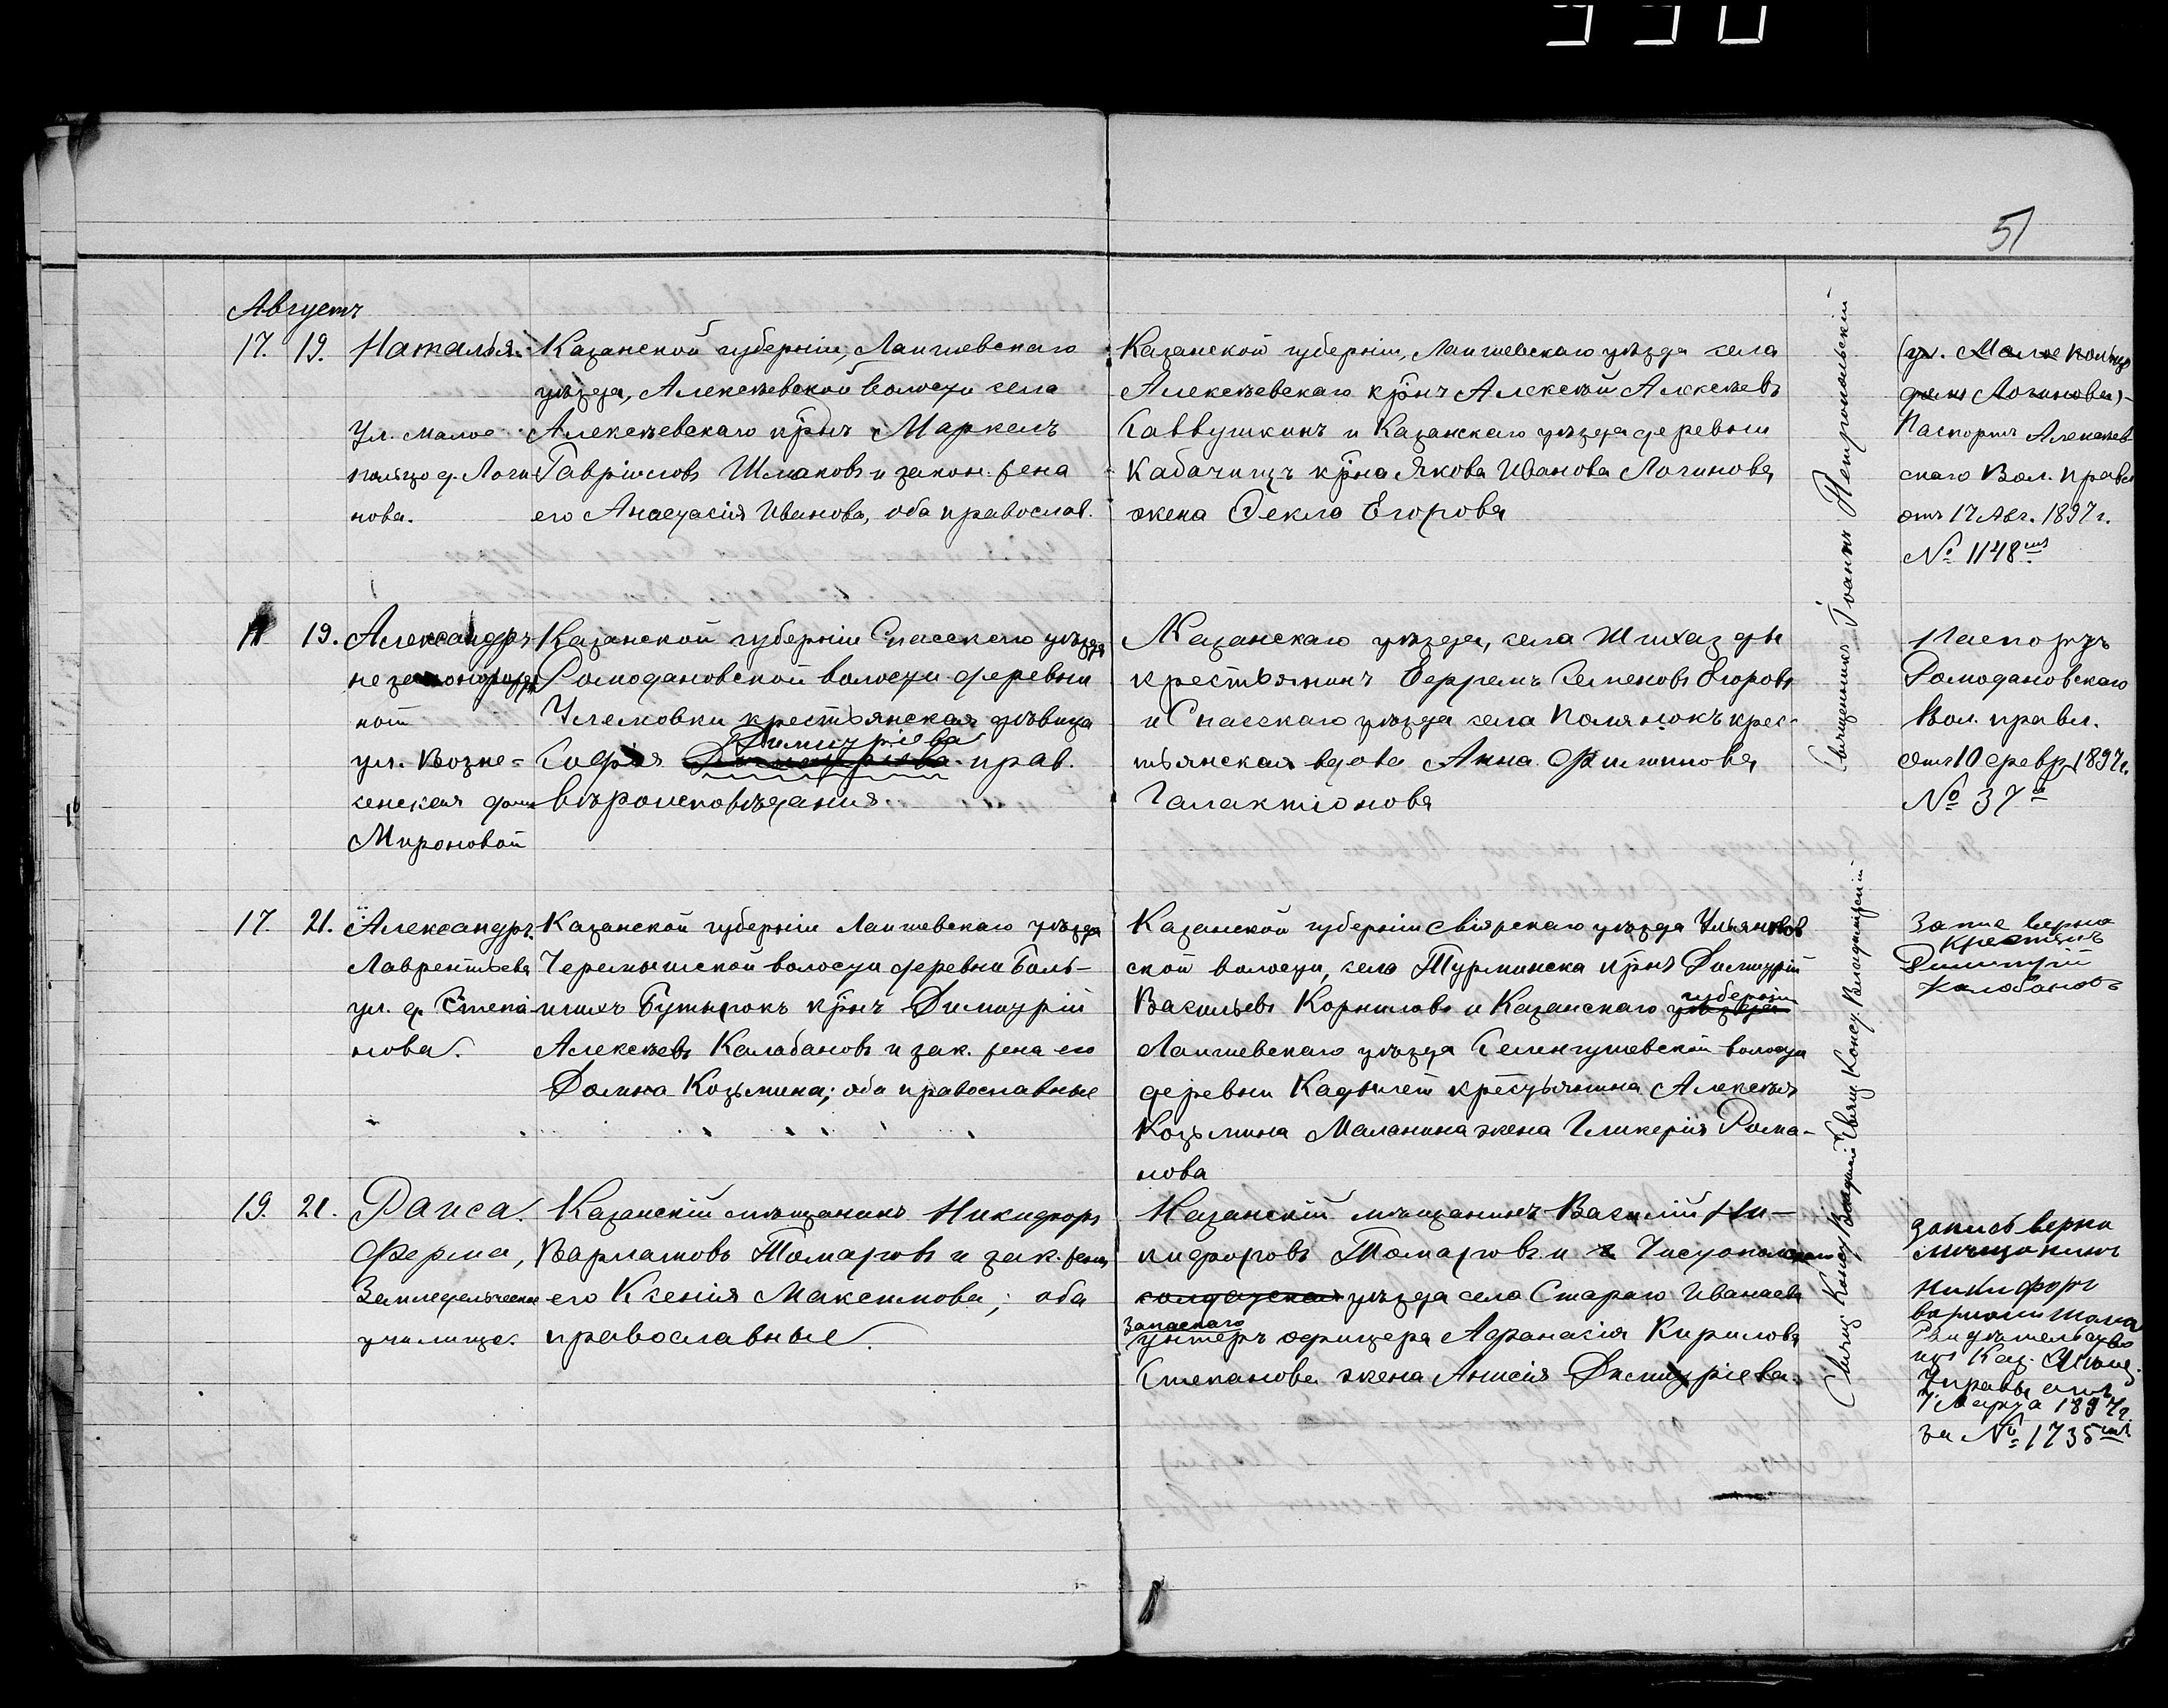 990
51
Августъ
17. 19. Наталья.
Ул. Малое
кольцо д. Логи
нова.
Казанской губерніи, Лаишевскаго
уѣзда, Алексѣевской волости села
Алексѣевскаго крнъ Маркелъ
Гавріиловъ Шмаковъ и закон. жена
его Анастасія Иванова, оба православ.
Казанской губерніи, Лаишевскаго уѣзда села
Алексѣевскаго крнъ Алексѣй Алексѣевъ
Саввушкинъ и Казанскаго уѣзда деревни
Кабачищъ крна Якова Иванова Логинова
жена Ѳекла Егорова
(ул. Малое кольцо
домъ Логинова)
Паспортъ Алексѣев
скаго Вол. Правл
отъ 17 Авг. 1897 г.
№ 1148
19. Александръ
незаконорожд
ный
ул. Возне=
сенская домъ
Мироновой
Казанской губерніи Спасскаго уѣзда
Ромодановской волости деревни
крестьянская дѣвица
Димитріева
Софія прав.
вѣроисповѣданія.
Казанскаго уѣзда, села Шигаз ды
крестьянинъ Ефремъ Семеновъ Егоровъ
и Спасскаго уѣзда села Полянокъ крес-
тьянская вдова Анна Филиппова
Галактіонова
Паспортъ
Ромодановскаго
Вол. правл.
отъ 10 февр. 1897 г.
№ 37
17. 21. Александръ
Лаврентьева
ул. д. Степа
нова.
Казанской губерніи Лаишевскаго уѣзда
Черемышской волости деревни Боль-
шихъ Бутырокъ крнъ Димитрій
Алексѣевъ Калабановъ и зак. жена его
Домна Козьмина; оба православные
Казанской губерніи Свіяжскаго уѣзда Ульянков
ской волости, села Турминска крнъ Димитрій
Васильевъ Корниловъ и Казанскаго уѣзда губерніи
Лаишевскаго уѣзда Селенгушевской волости
деревни Кадылей крестьянина Алексѣя
Козьмина Маланина жена Гликерія Рома-
нова
верна
Крестянъ
Димитри
Калабановъ
19. 21. Раиса.
Ферма,
Земледельческое
училище.
Казанскій мѣщанинъ Никифоръ
Варламовъ Томаровъ и зак. жена
его Ксенія Максимова; оба
православные.
Казанскій мѣщанинъ Василій Ни-
кифоровъ Томаровъ и Чистопольскаго
солдатская уѣзда села Стараго Иванаева
запаснаго
унтеръ офицера Афанасія Кирилова
Степанова жена Анисія Димитріева.
запись верна
мещанинъ
Никифоръ
Свидѣтельство
изъ Каз. Мѣщ.
Управы отъ
7 Марта 1897 г.
за № 1735
Священникъ Іоаннъ Петропольскій